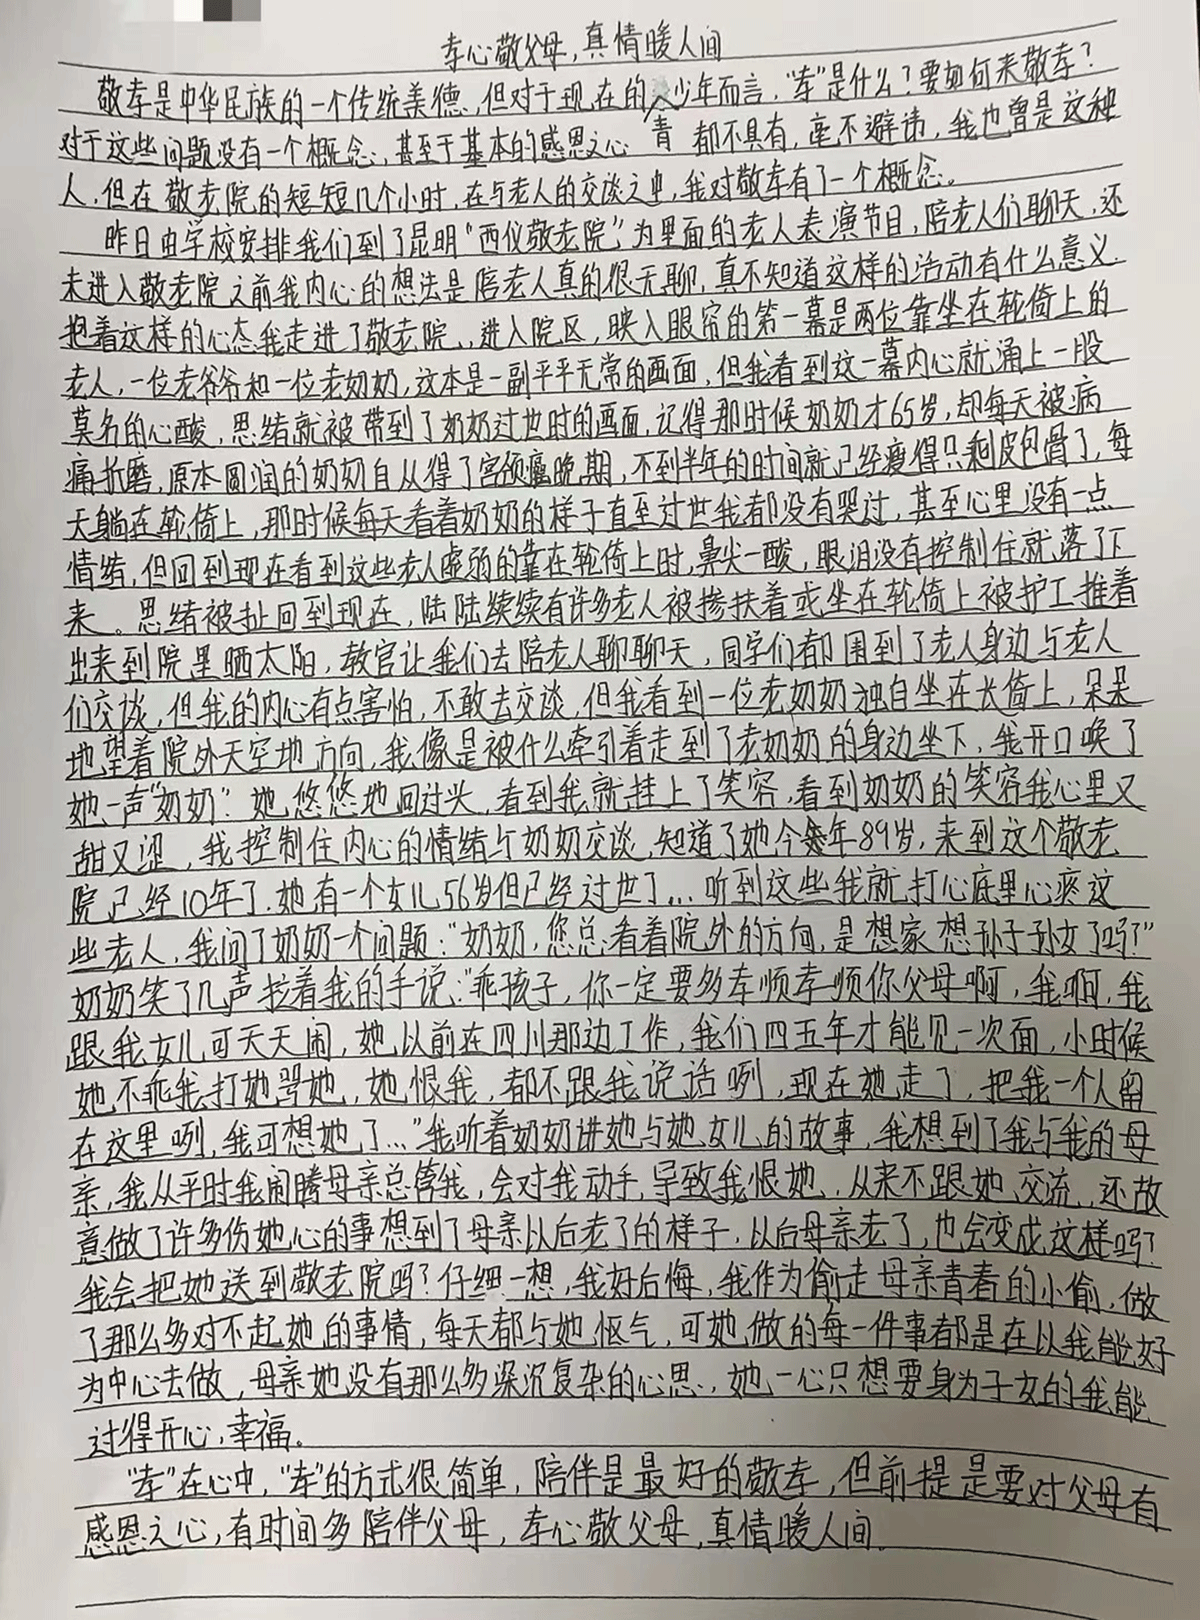 孝心敬父母,真情暖人间
敬孝是中华民族的一个传统美德,但对于现在的青少年而言,"孝"是什么?要如何来敬孝?
对于这些问题没有一个概念,甚至于基本的感恩之心都不具有,毫不避讳,我也曾是这种
人,但在敬老院的短短几个小时,在与老人的交谈之中,我对敬孝有了一个概念。
昨日由学校安排我们到了昆明"西仪敬老院",为里面的老人表演节目,陪老人们聊天,还
未进入敬老院之前我内心的想法是陪老人真的很无聊,真不知道这样的活动有什么意义.
抱着这样的心态我走进了敬老院,进入院区,映入眼帘的第一幕是两位靠坐在轮倚上的
老人,一位老爷爷和一位老奶奶,这本是一副平平无常的画面,但我看到这一幕内心就涌上一股
莫名的心酸,思绪就被带到了奶奶过世时的画面,记得那时候奶奶才65岁,却每天被病
痛折磨,原本圆润的奶奶自从得了宫颈癌晚期,不到半年的时间就已经瘦得只剩皮包骨了,每
天躺在轮倚上,那时候每天看着奶奶的样子直至过世我都没有哭过,甚至心里没有一点
情绪,但回到现在看到这些老人虚弱的靠在轮倚上时,鼻尖一酸,眼泪没有控制住就落了下
来。思绪被扯回到现在,陆陆续续有许多老人被掺扶着或坐在轮倚上被护工推着
出来到院里晒太阳,教官让我们去陪老人聊聊天,同学们都围到了老人身边与老人
们交谈,但我的内心有点害怕,不敢去交谈,但我看到一位老奶奶独自坐在长倚上,呆呆
地望着院外天空地方向,我像是被什么牵引着走到了老奶奶的身边坐下,我开口唤了
她一声"奶奶".她悠悠地回过头,看到我就挂上了笑容,看到奶奶的笑容我心里又
甜又涩,我控制住内心的情绪与奶奶交谈,知道了她今年89岁,来到这个敬老
院已经10年了.她有一个女儿56岁但已经过世了...听到这些我就打心底里心疼这
些老人,我问了奶奶一个问题:"奶奶,您总看着院外的方向,是想家想孙子孙女了吗?"
奶奶笑了几声拉着我的手说:"乖孩子,你一定要多孝顺孝顺你父母啊,我啊,我
跟我女儿可天天闹,她以前在四川那边工作,我们四五年才能见一次面,小时候
她不乖我打她骂她,她恨我,都不跟我说话咧,现在她走了,把我一个人留
在这里咧,我可想她了..."我听着奶奶讲她与她女儿的故事,我想到了我与我的母
亲,我从平时我闹腾母亲总管我,会对我动手,导致我恨她,从来不跟她交流,还故
意做了许多伤她心的事想到了母亲以后老了的样子,以后母亲老了,也会变成这样吗?
我会把她送到敬老院吗?仔细一想,我好后悔,我作为偷走母亲青春的小偷,做
了那么多对不起她的事情,每天都与她怄气,可她做的每一件事都是在以我能好
为中心去做,母亲她没有那么多深沉复杂的心思,她一心只想要身为子女的我能
过得开心,幸福。
"孝"在心中,"孝"的方式很简单,陪伴是最好的敬孝,但前提是要对父母有
感恩之心,有时间多陪伴父母,孝心敬父母,真情暖人间.